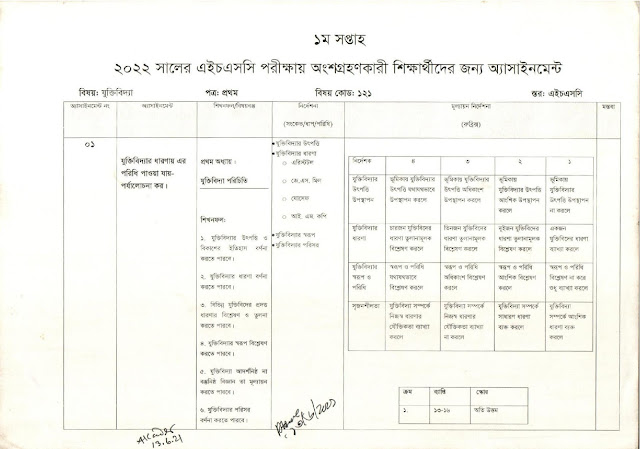 ১ম সপ্তাহ
২০২২ সালের এইচএসসি পরীক্ষায় অংশগ্রহণকারী শিক্ষার্থীদের জন্য অ্যাসাইনমেন্ট
বিষয়: যুক্তিবিদ্যা পত্র: প্রথম বিষয় কোড: ১২১ স্তর: এইচএসসি
অ্যাসাইনমেন্ট নং অ্যাসাইনমেন্ট শিখনফল/বিষয়বস্তু নির্দেশনা মূল্যায়ন নির্দেশনা মন্তব্য
(সংকেত/ধাপ/পরিধি) (রুব্রিক্স)
০১
যুক্তিবিদ্যার ধারণায় এর
পরিধি পাওয়া যায়-
পর্যালোচনা কর।
প্রথম অধ্যায় :
যুক্তিবিদ্যা পরিচিতি
শিখনফল:
১. যুক্তিবিদ্যার উৎপত্তি ও
বিকাশের ইতিহাস বর্ণনা
করতে পারবে।
২. যুক্তিবিদ্যার ধারণা বর্ণনা
করতে পারবে।
৩. বিভিন্ন যুক্তিবিদের প্রদত্ত
ধারণার বিশ্লেষণ ও তুলনা
করতে পারবে।
৪. যুক্তিবিদ্যার স্বরূপ বিশ্লেষণ
করতে পারবে।
৫. যুক্তিবিদ্যা আদর্শনিষ্ঠ না
বস্তুনিষ্ঠ বিজ্ঞান তা মূল্যায়ন
করতে পারবে।
৬. যুক্তিবিদ্যার পরিসর
বর্ণনা করতে পারবে।
• যুক্তিবিদ্যার উৎপত্তি
• যুক্তিবিদ্যার ধারণা
○ এরিস্টটল
○ জে.এস. মিল
○ যোসেফ
○ আই. এম. কপি
• যুক্তিবিদ্যার স্বরূপ
• যুক্তিবিদ্যার পরিসর
নির্দেশক ৪ ৩ ২ ১
যুক্তিবিদ্যার ভূমিকায় যুক্তিবিদ্যার ভূমিকায় যুক্তিবিদ্যার ভূমিকায় ভূমিকায়
উৎপত্তি উৎপত্তি যথাযথভাবে উৎপত্তি অধিকাংশ যুক্তিবিদ্যার উৎপত্তি যুক্তিবিদ্যার
উপস্থাপন উপস্থাপন করলে উপস্থাপন করলে আংশিক উপস্থাপন উৎপত্তি উপস্থাপন
করলে না করলে
যুক্তিবিদ্যার চারজন যুক্তিবিদের তিনজন যুক্তিবিদের দুইজন যুক্তিবিদের একজন
ধারণা ধারণা তুলনামূলক ধারণা তুলনামূলক ধারণা তুলনামূলক যুক্তিবিদের ধারণা
বিশ্লেষণ করলে বিশ্লেষণ করলে বিশ্লেষণ করলে ব্যাখ্যা করলে
যুক্তিবিদ্যার স্বরূপ ও পরিধি স্বরূপ ও পরিধি স্বরূপ ও পরিধি স্বরূপ ও পরিধি
স্বরূপ ও যথাযথভাবে অধিকাংশ বিশ্লেষণ আংশিক বিশ্লেষণ বিশ্লেষণ না করে
পরিধি বিশ্লেষণ করলে করলে করলে শুধু ব্যাখ্যা করলে
সৃজনশীলতা যুক্তিবিদ্যা সম্পর্কে যুক্তিবিদ্যা সম্পর্কে যুক্তিবিদ্যা সম্পর্কে যুক্তিবিদ্যা
নিজস্ব ধারণার নিজস্ব ধারণার সাধারণ ধারণা সম্পর্কে আংশিক
যৌক্তিকতা ব্যাখ্যা যৌক্তিকতা ব্যাখ্যা ব্যক্ত করলে ধারণা ব্যক্ত
করলে না করলে করলে
ক্রম ব্যাপ্তি স্কোর
১. ১৩-১৬ অতি উত্তম
13.6.21